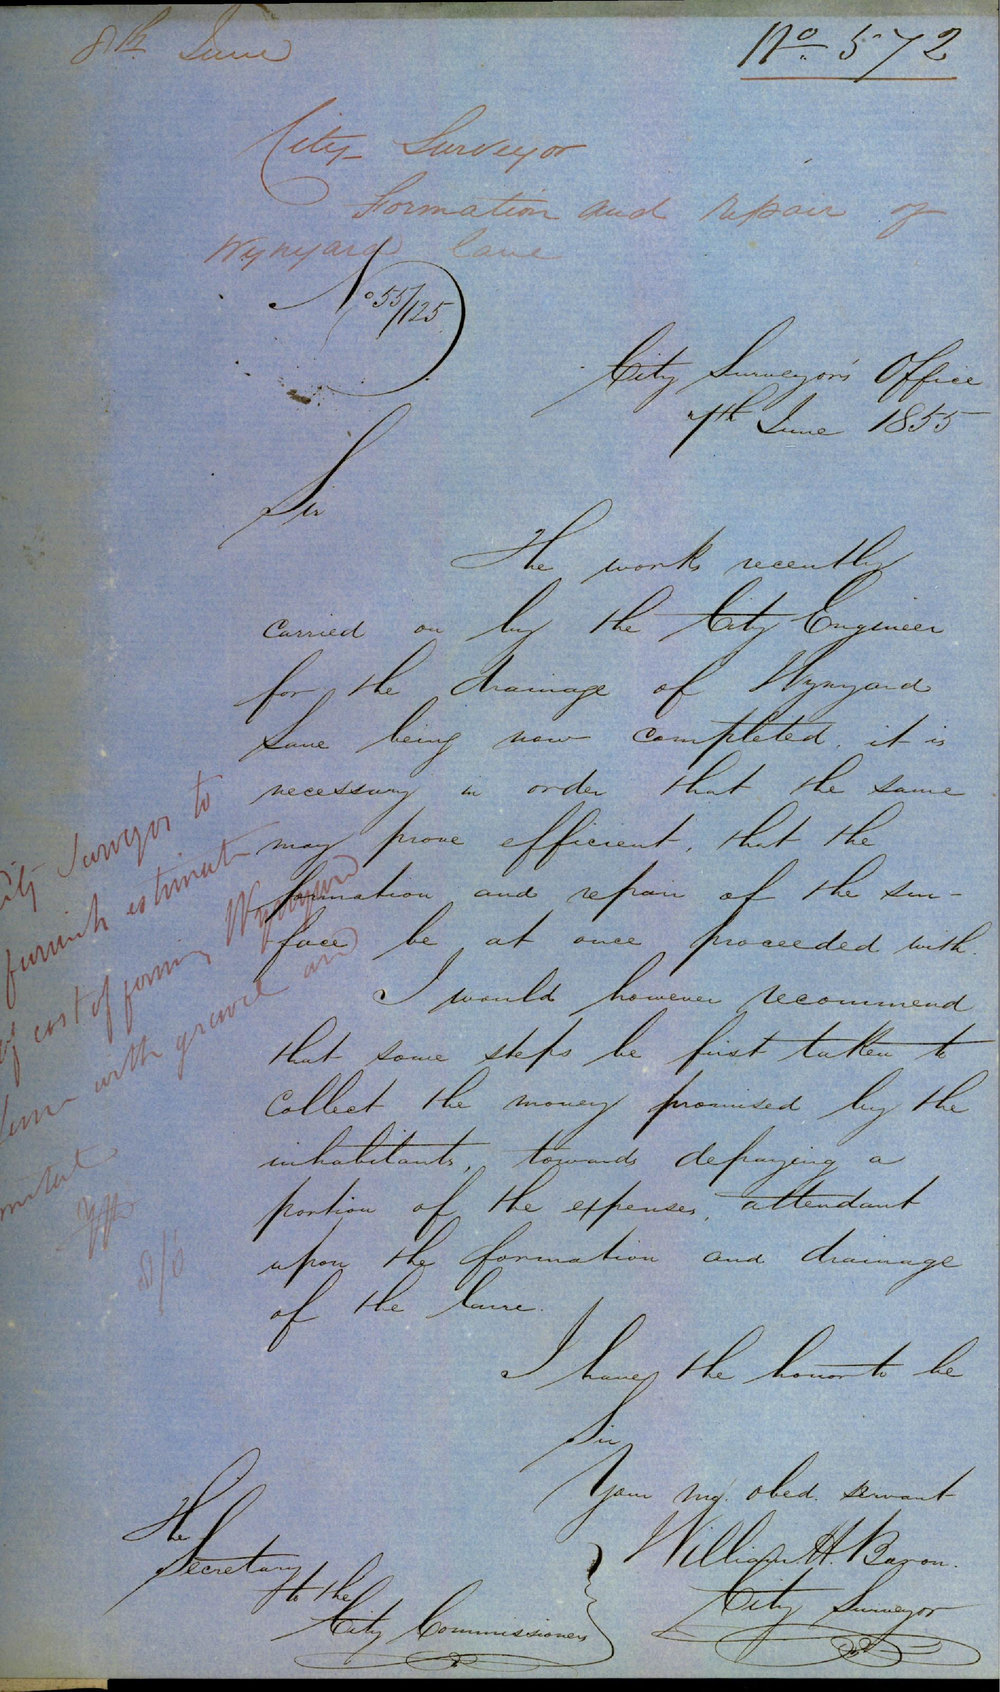 8th June
No 572
City Surveyor
Formation and repair of
Wynyard lane
No 55/125
City Surveyor's Office
7th June 1855
Sir
The works recently
carried on by the City Engineer
for the drainage of Wynyard
Lane being now completed, it is
necessary in order that the same
may prove efficient, that the
formation and repair of the sur-
face be at once proceeded with.
I would however recommend
that some steps be first taken to
collect the money promised by the
inhabitants, towards defraying a
portion of the expenses, attendant
upon the formation and drainage
of the lane.
I have the honor to be
Sir
Your mo. obed. servant
William H. Baron.
City Surveyor
The
Secretary
to the
City Commissioners
City Surveyor to
furnish estimate
of cost of forming Wynyard
Lane with gravel and